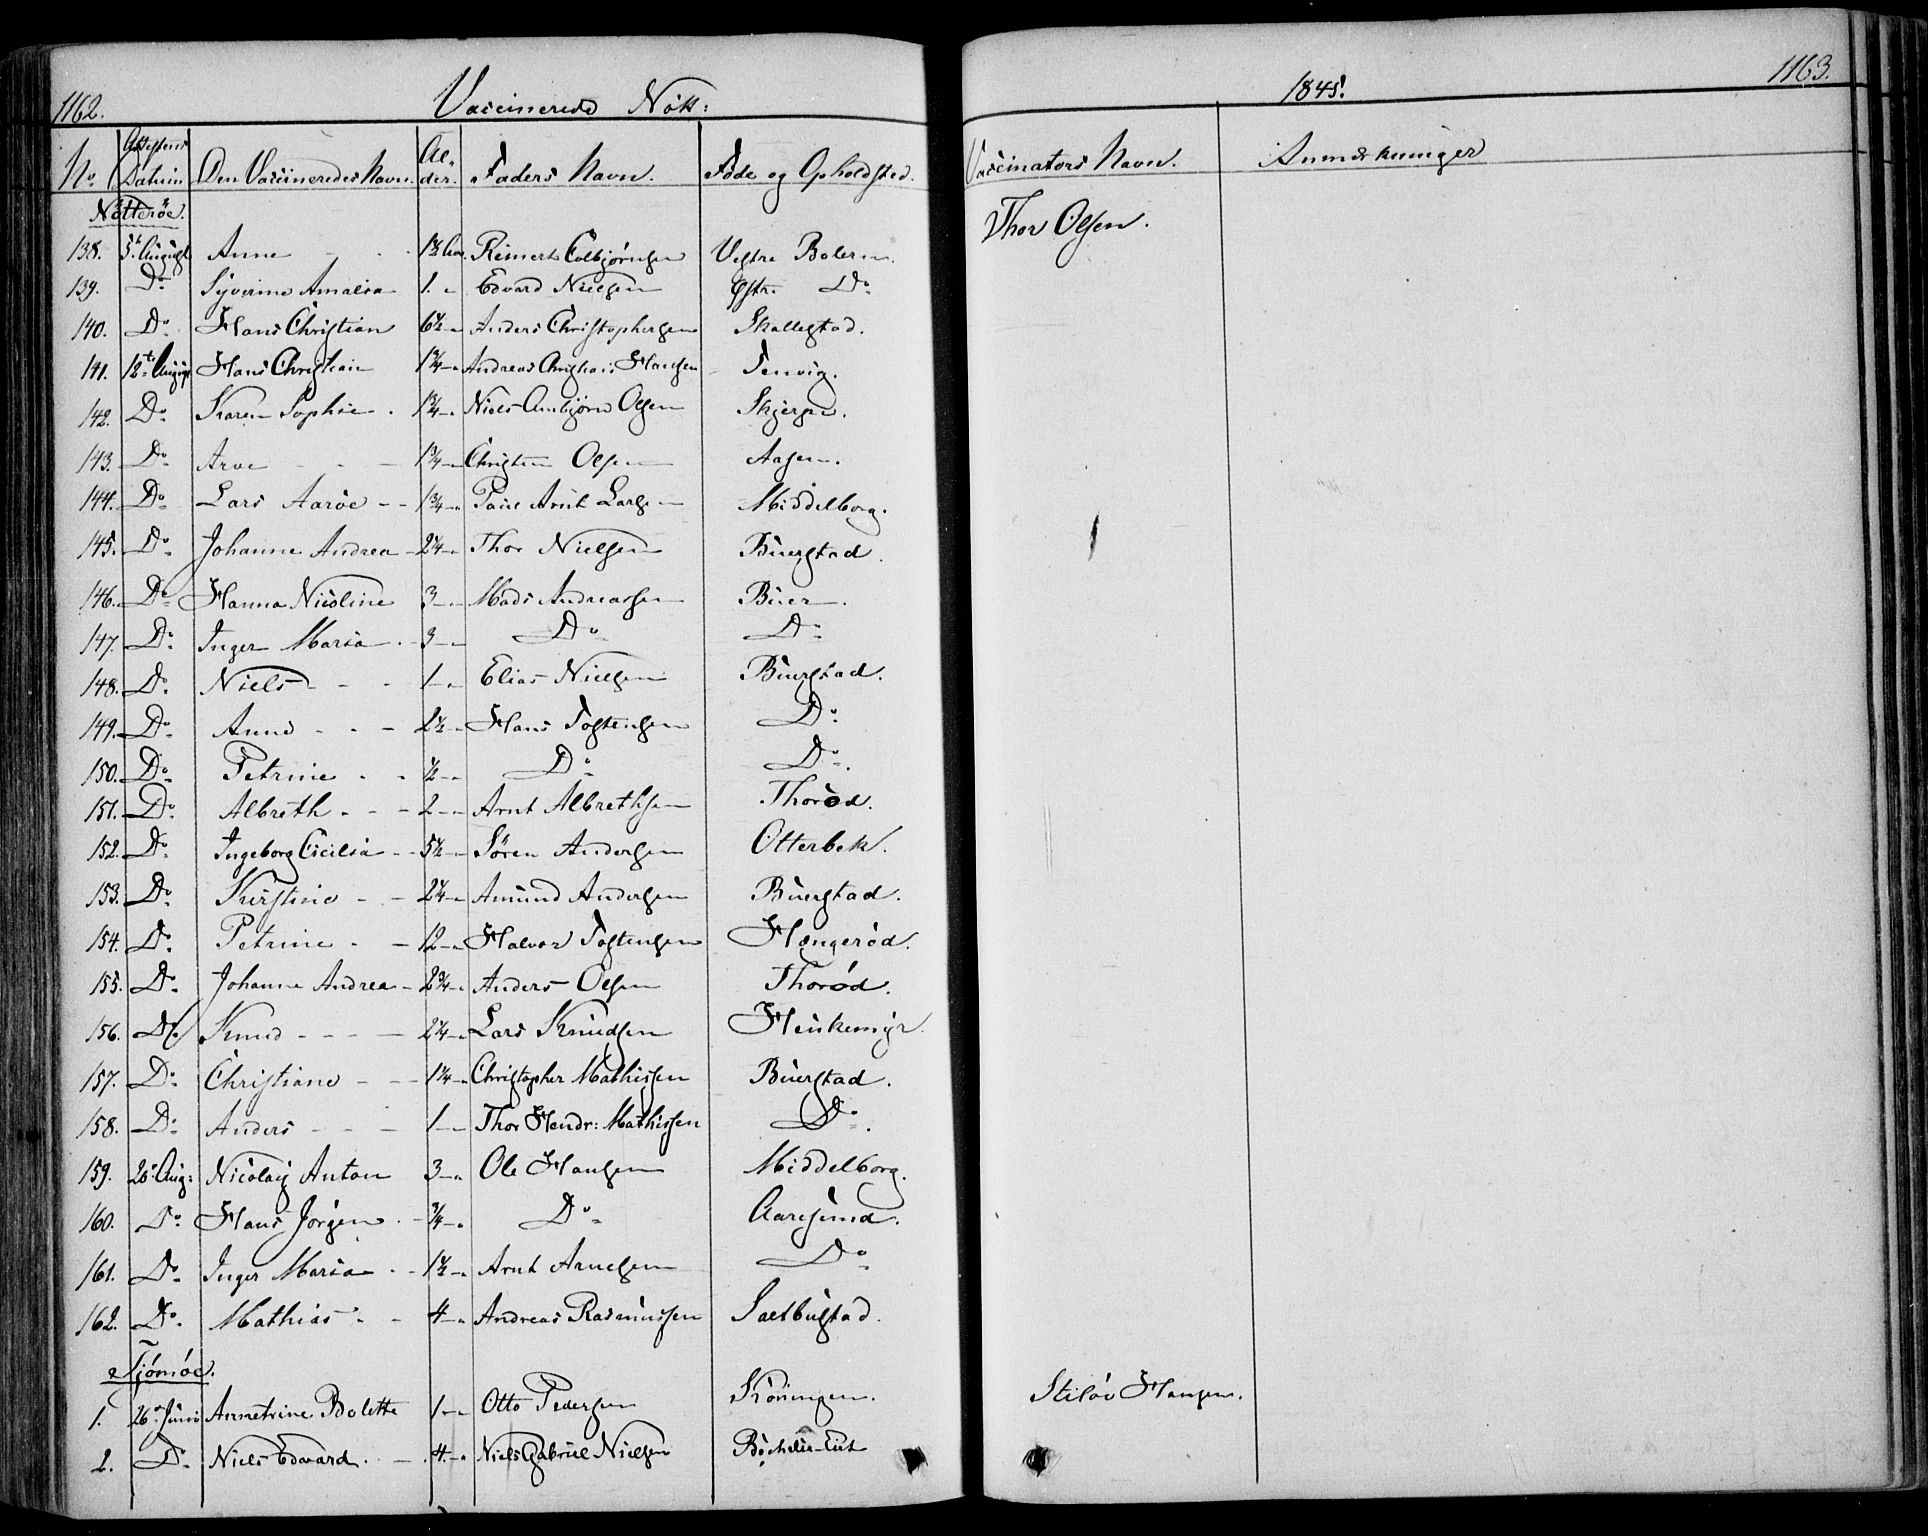 1162. Vaccinerede Nött:
No. Attestens Datum Den Vaccineredes Navn. Alder. Faders Navn. Føde og Opholdsted.
Nötteröe.
138. 5te August Anne - - 1½ Aar Reinert Colbjörnsen Vestre Bolern.
139. Do Syverine Amalia 1 " Edvard Nielsen Østre Do
140. Do Hans Christian 6½ " Anders Christophersen Skallestad.
141. 12te August Hans Christian 1¾ " Andreas Christian Hansen Tenvig.
142. Do Karen Sophie 1¾ " Niels Anbjörn Olsen Skjerpe.
143. Do Arve - - 1¾ " Christen Olsen Aasen.
144. Do Lars Aaröe - - 1¾ " Paul Arnt Larsen Middelborg.
145. Do Johanne Andrea - 2¼ " Thor Nielsen Buerstad.
146. Do Hanna Nicoline 3 - " Mads Andreassen Buer.
147. Do Inger Maria - 3 - " Do Do
148. Do Niels - - - 1 - " Elias Nielsen Buerstad.
149. Do Anne - - - 2½ " Hans Tostensen Do
150. Do Petrine - - ½ - " Do Do
151. Do Albreth - - - 2 - " Arnt Albrethsen Thoröd.
152. Do Ingeborg Cicilia - - 5½ " Sören Andersen Otterbek.
153. Do Kirstine - - 2¼ " Amund Andersen Buerstad.
154. Do Petrine - - 12 - " Halvor Tostensen Hængeröd.
155. Do Johanne Andrea - 2¾ " Anders Olsen Thoröd.
156. Do Knud - - - - 2¼ " Lars Knudsen
157. Do Christiane - - - 1¼ " Christopher Mathissen Buerstad.
158. Do Anders - - - 1 - " Thor Hendr: Mathissen Do
159. 26 Aug: Nicolay Anton 3 - " Ole Hansen Middelborg.
160. Do Hans Jørgen - - ¾ " Do Aarøsund.
161. Do Inger Maria - - 1½ " Arnt Arnesen Do
162. Do Mathias - - 4 - " Andreas Rasmussen Saltbustad.
Tjömöe.
1. 26 Juni Annetrine Bolette 1 - " Otto Pedersen Kröningen.
2. Do Niels Edvard - - 4 - " Niels Gabriel Nielsen
1845. 1163.
Vaccinators Navn. Anmærkninger
Thor Olsen.
Stiløv Hansen.